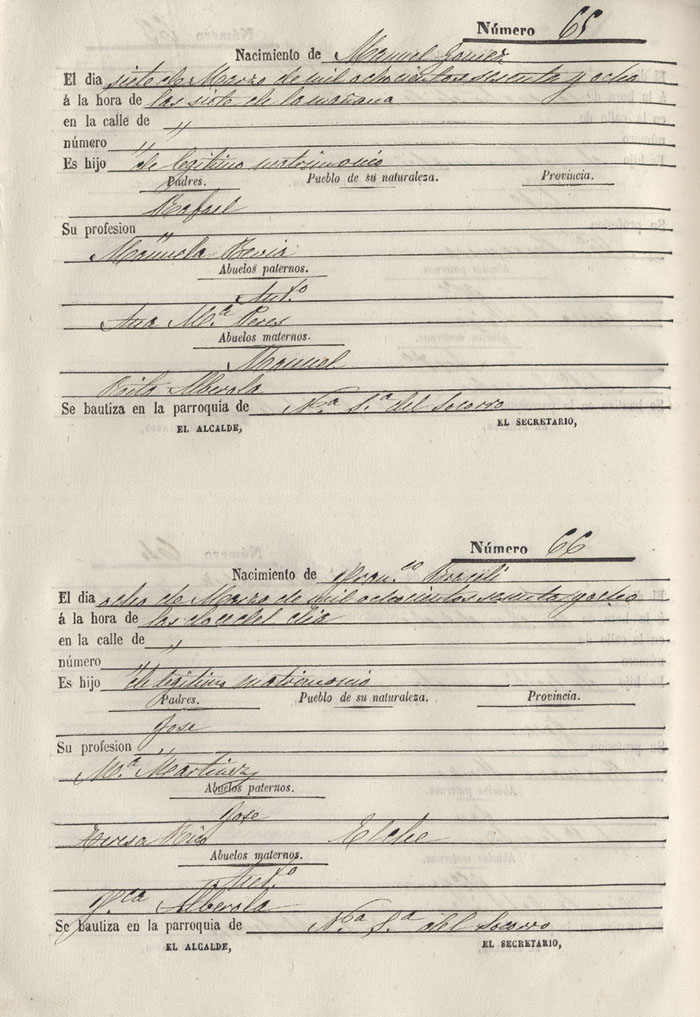 Número 65
Nacimiento de Manuel Gomez
El dia siete de Marzo de mil ochocientos sesenta y ocho
á la hora de las siete de la mañana
en la calle de "
número "
Es hijo de legitimo matrimonio
Padres. Pueblo de su naturaleza. Provincia.
Rafael
Su profesion "
Manuela
Abuelos paternos.
Ant.º
Ana M.ª Peres
Abuelos maternos.
Manuel
Rita Alberola
Se bautiza en la parroquia de N.ª S.ª del Socorro
EL ALCALDE, EL SECRETARIO,
Número 66
Nacimiento de Fran.co
El dia ocho de Marzo de mil ochocientos sesenta y ocho
á la hora de las doce del dia
en la calle de "
número "
Es hijo de legitimo matrimonio
Padres. Pueblo de su naturaleza. Provincia.
Jose
Su profesion "
M.ª Martinez
Abuelos paternos.
Jose
Teresa Rico Elche
Abuelos maternos.
Ant.º
Alberola
Se bautiza en la parroquia de N.ª S.ª del Socorro
EL ALCALDE, EL SECRETARIO,